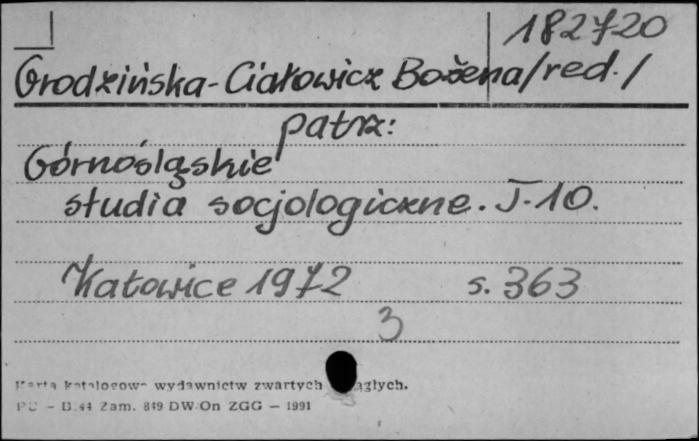 182720
Grodzińska-Ciałowicz Bożena/red./
patrz:
Górnośląskie
studia socjologiczne. T.10.
Katowice 1972 s. 363
3
Karta katalogowa wydawnictw zwartych ciągłych.
PU – B.44 Zam. 849 DW On ZGG – 1991